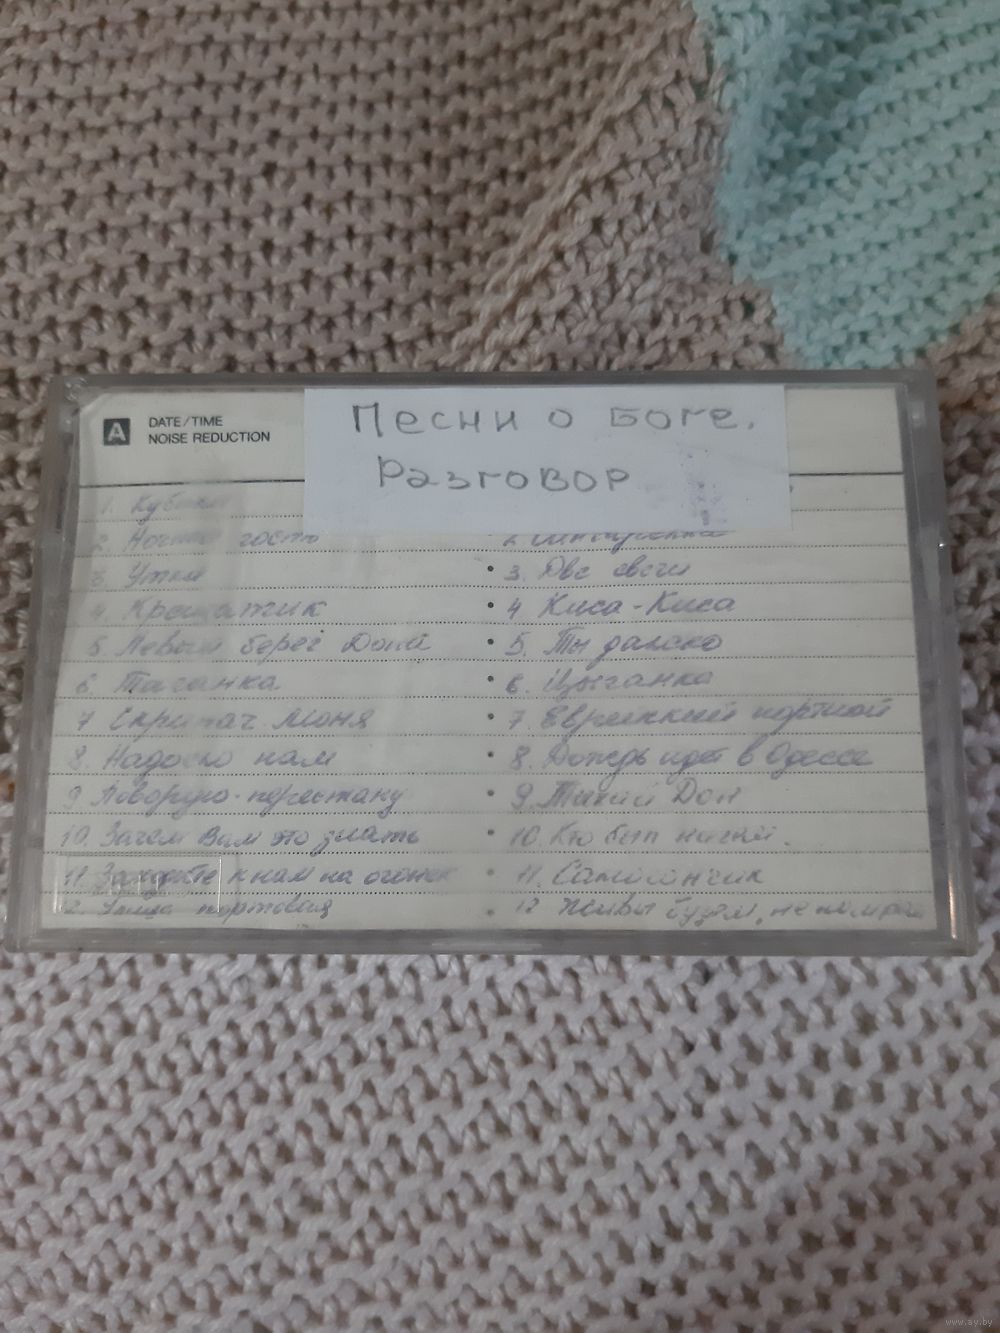 A DATE/TIME
NOISE REDUCTION
Песни о Боге.
Разговор
1.
2. гость
3 Утки
4. Крещатик
5 Левый берег Дона
6. Таганка
7 Скрипач Моня
8. Надоело нам
9 Поворую-перестану
10. Зачем Вам это знать
11. Заходите к нам на огонек
12. Улица портовая
2
3. Две свечи
4 Киса-Киса
5. Ты далеко
6. Цыганка
7. Еврейский портной
8. Дождь идёт в Одессе
9. Тихий Дон
10. Кто был
11. Самогончик
12 Живы будем, не помрем
www.ay.by